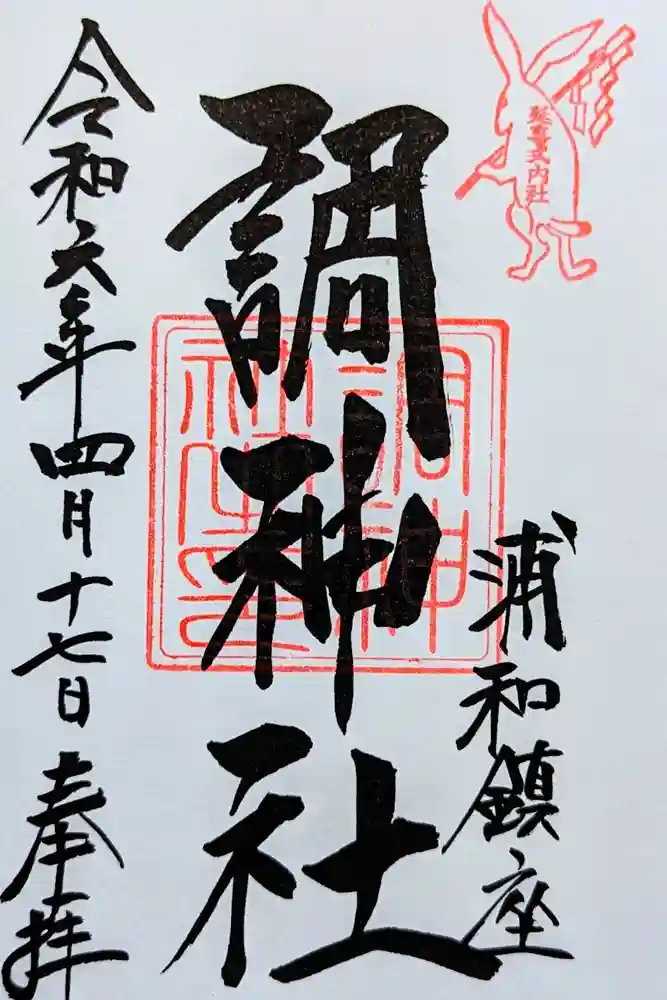 延喜式内社
浦和鎮座
調神社
調神社之印
令和六年四月十七日奉拝